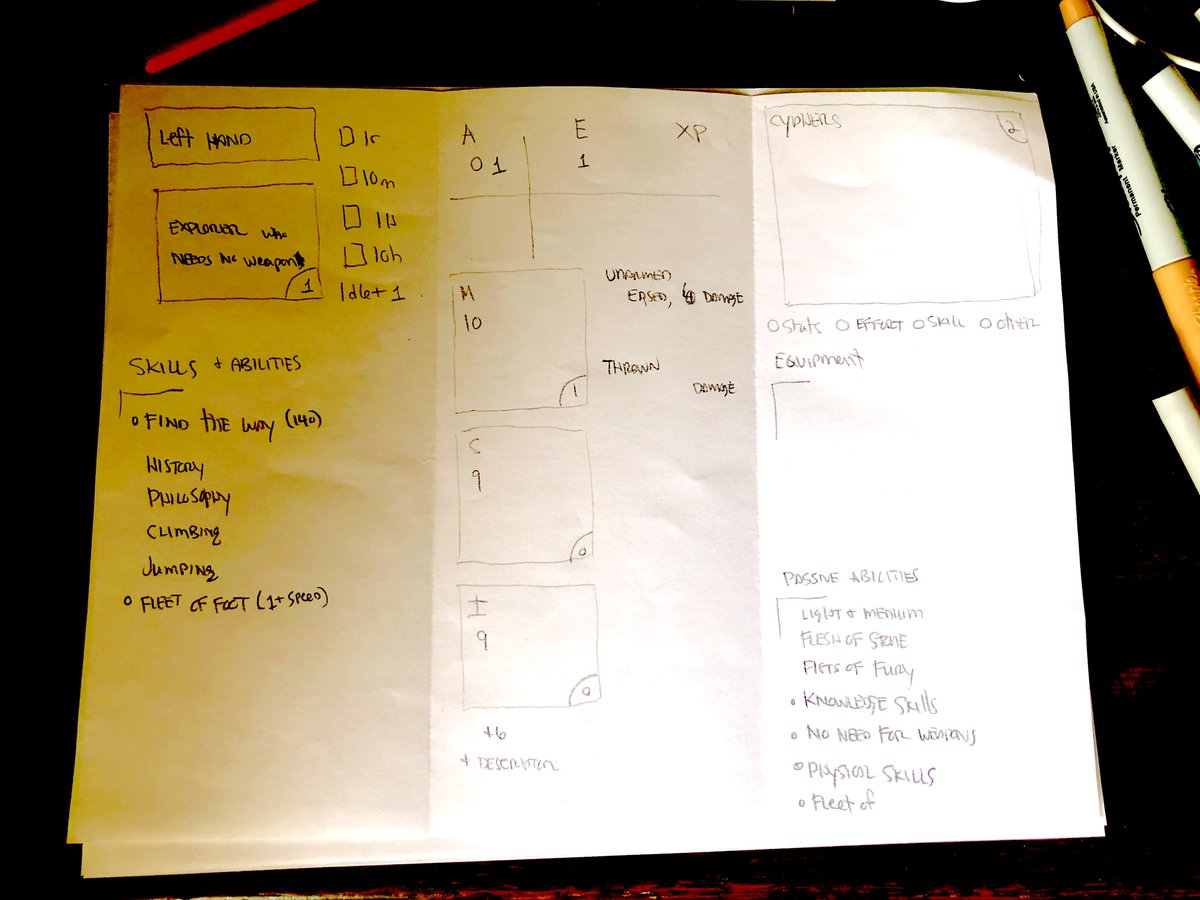 Left HAND
EXPLORER WHO
NEEDS NO weapon
1
1r
10m
1h
10h
1d6+1
SKILLS + ABILITIES
FIND the WAY (140)
HISTORY
PHILOSOPHY
CLIMBING
JUMPING
FLEET OF FOOT (1+ SPEED)
A E XP
0 1 1
M
10
1
UNARMED
EASED, DAMAGE
THROWN
DAMAGE
S
9
0
I
9
0
+6
+ DESCRIPTOR
CYPHERS
2
Stats EFFORT SKILL OTHER
EQUIPMENT
PASSIVE ABILITIES
LIGHT + MEDIUM
FLESH OF STONE
FISTS OF FURY
KNOWLEDGE SKILLS
NO NEED FOR WEAPONS
PHYSICAL SKILLS
Fleet of
Permanent Marker